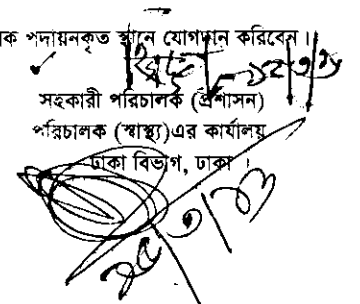 ক পদায়নকৃত স্থানে যোগদান করিবেন।
সহকারী পরিচালক (প্রশাসন)
পরিচালক (স্বাস্থ্য)এর কার্যালয়
ঢাকা বিভাগ, ঢাকা ।